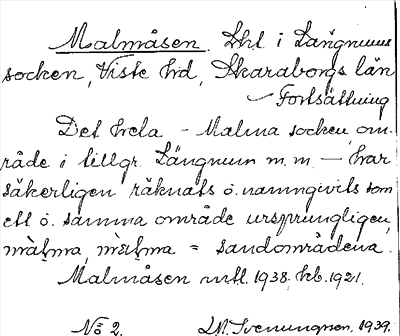 Malmåsen. Lht. i Längnums
socken, Viste hrd, Skaraborgs län
— Fortsättning
Det hela – Malma socken om-
råde i tillgr. Längnum m.m – har
säkerligen räknats o. namngivits som
ett o. samma område ursprungligen,
= sandområdena.
Malmåsen mtl. 1938. kb. 1921.
No 2. Svenungson. 1939.